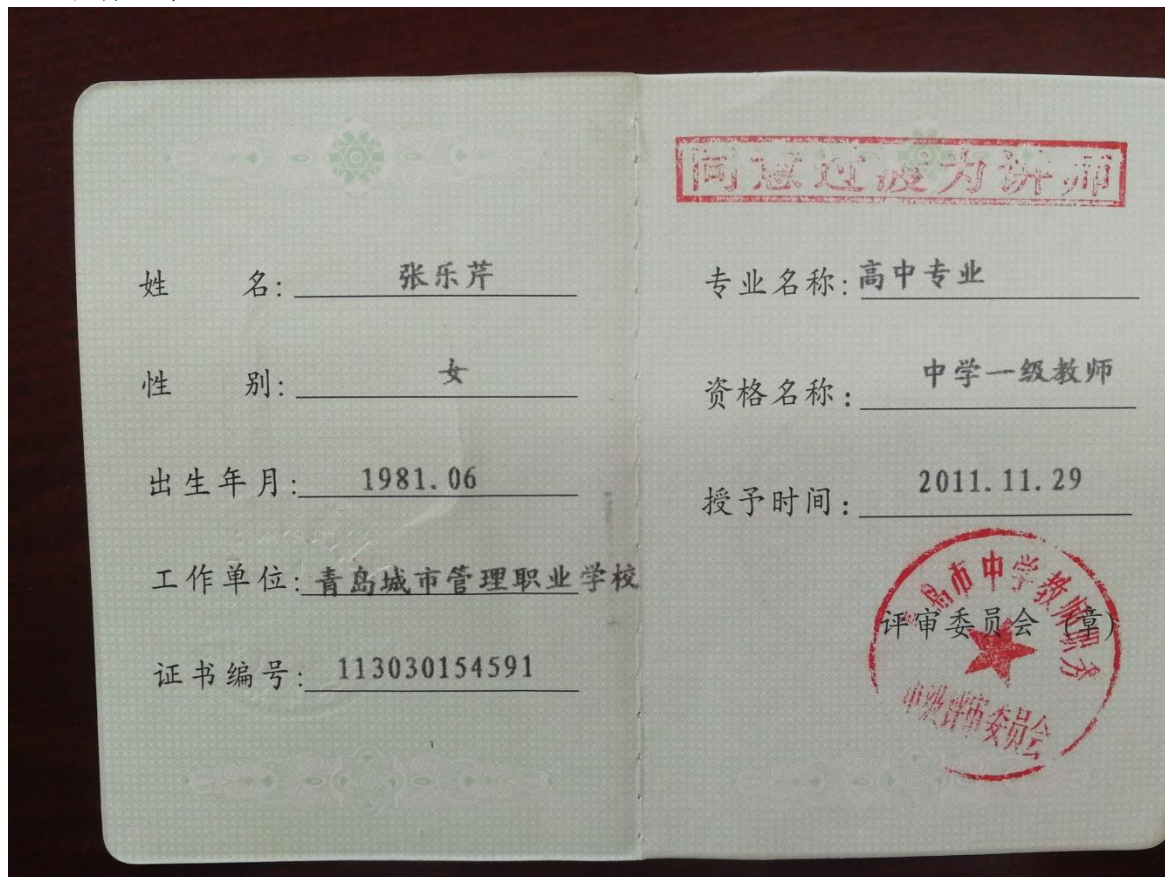 姓 名: 张乐芹
性 别: 女
出生年月: 1981.06
工作单位: 青岛城市管理职业学校
证书编号: 113030154591
同意过渡为讲师
专业名称: 高中专业
资格名称: 中学一级教师
授予时间: 2011.11.29
评审委员会 (章)
岛市中学教师职务
中级评审委员会